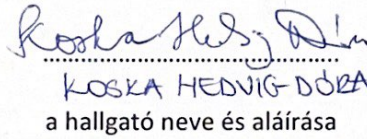 Koska Hedvig Dóra
KOSKA HEDVIG-DÓRA
a hallgató neve és aláírása